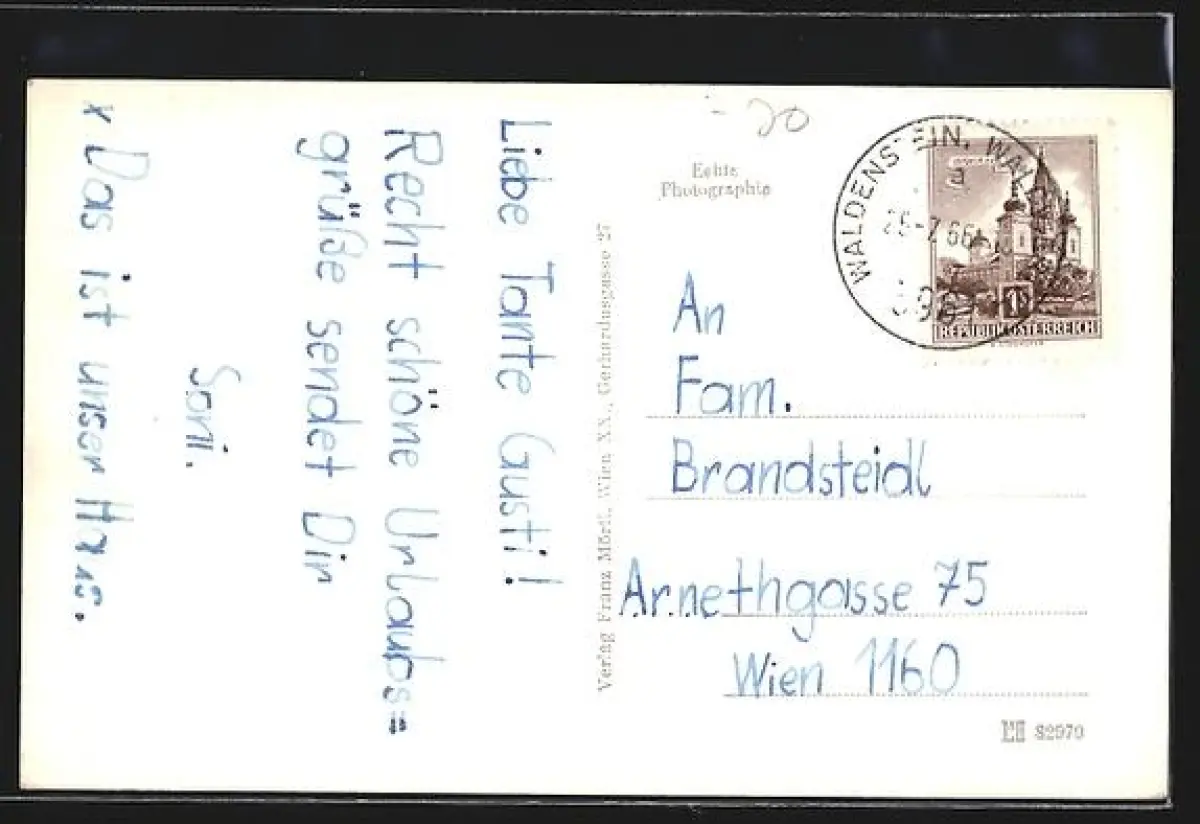 Liebe Tante Gusti!
Recht schöne Urlaubs=
grüße sendet Dir
x Das ist unser Haus.
Verlag Franz Mörtl, Wien XX., Gerhardusgasse 27
-20
Echte
Photographie
WALDENSTEIN,
a
25-7.66
REPUBLIK ÖSTERREICH
1
An
Fam.
Brandsteidl
Arnethgasse 75
Wien 1160
82970